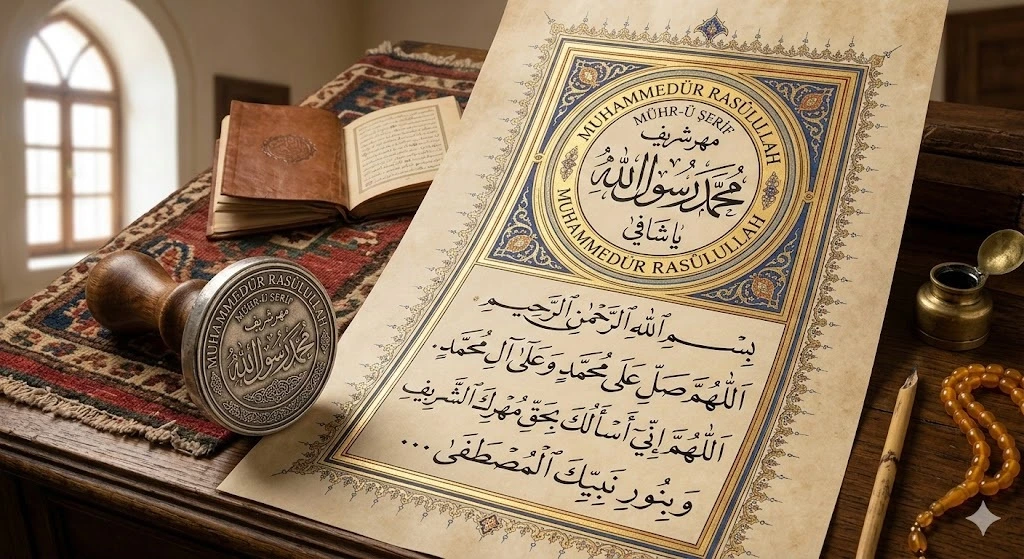 MUHAMMEDÜR RASÜLULLAH
MÜHR-Ü ŞERİF
مهر شريف
مُحَمَّد رَسُولُ اللّٰه
يا شافي
MUHAMMEDÜR RASÜLULLAH
بِسْمِ اللهِ الرَّحْمٰنِ الرَّحِيمِ
اَللّٰهُمَّ صَلِّ عَلَى مُحَمَّدٍ وَعَلَىٰ آلِ مُحَمَّدٍ.
اَللّٰهُمَّ إِنِّي أَسْأَلُكَ بِحَقِّ مُهْرِكَ الشَّرِيفِ
وَ بِنُورِ نَبِيِّكَ الْمُصْطَفَىٰ ...
MUHAMMEDÜR RASÜLULLAH
MÜHR-Ü ŞERİF
مهر شريف
محمد رسول الله